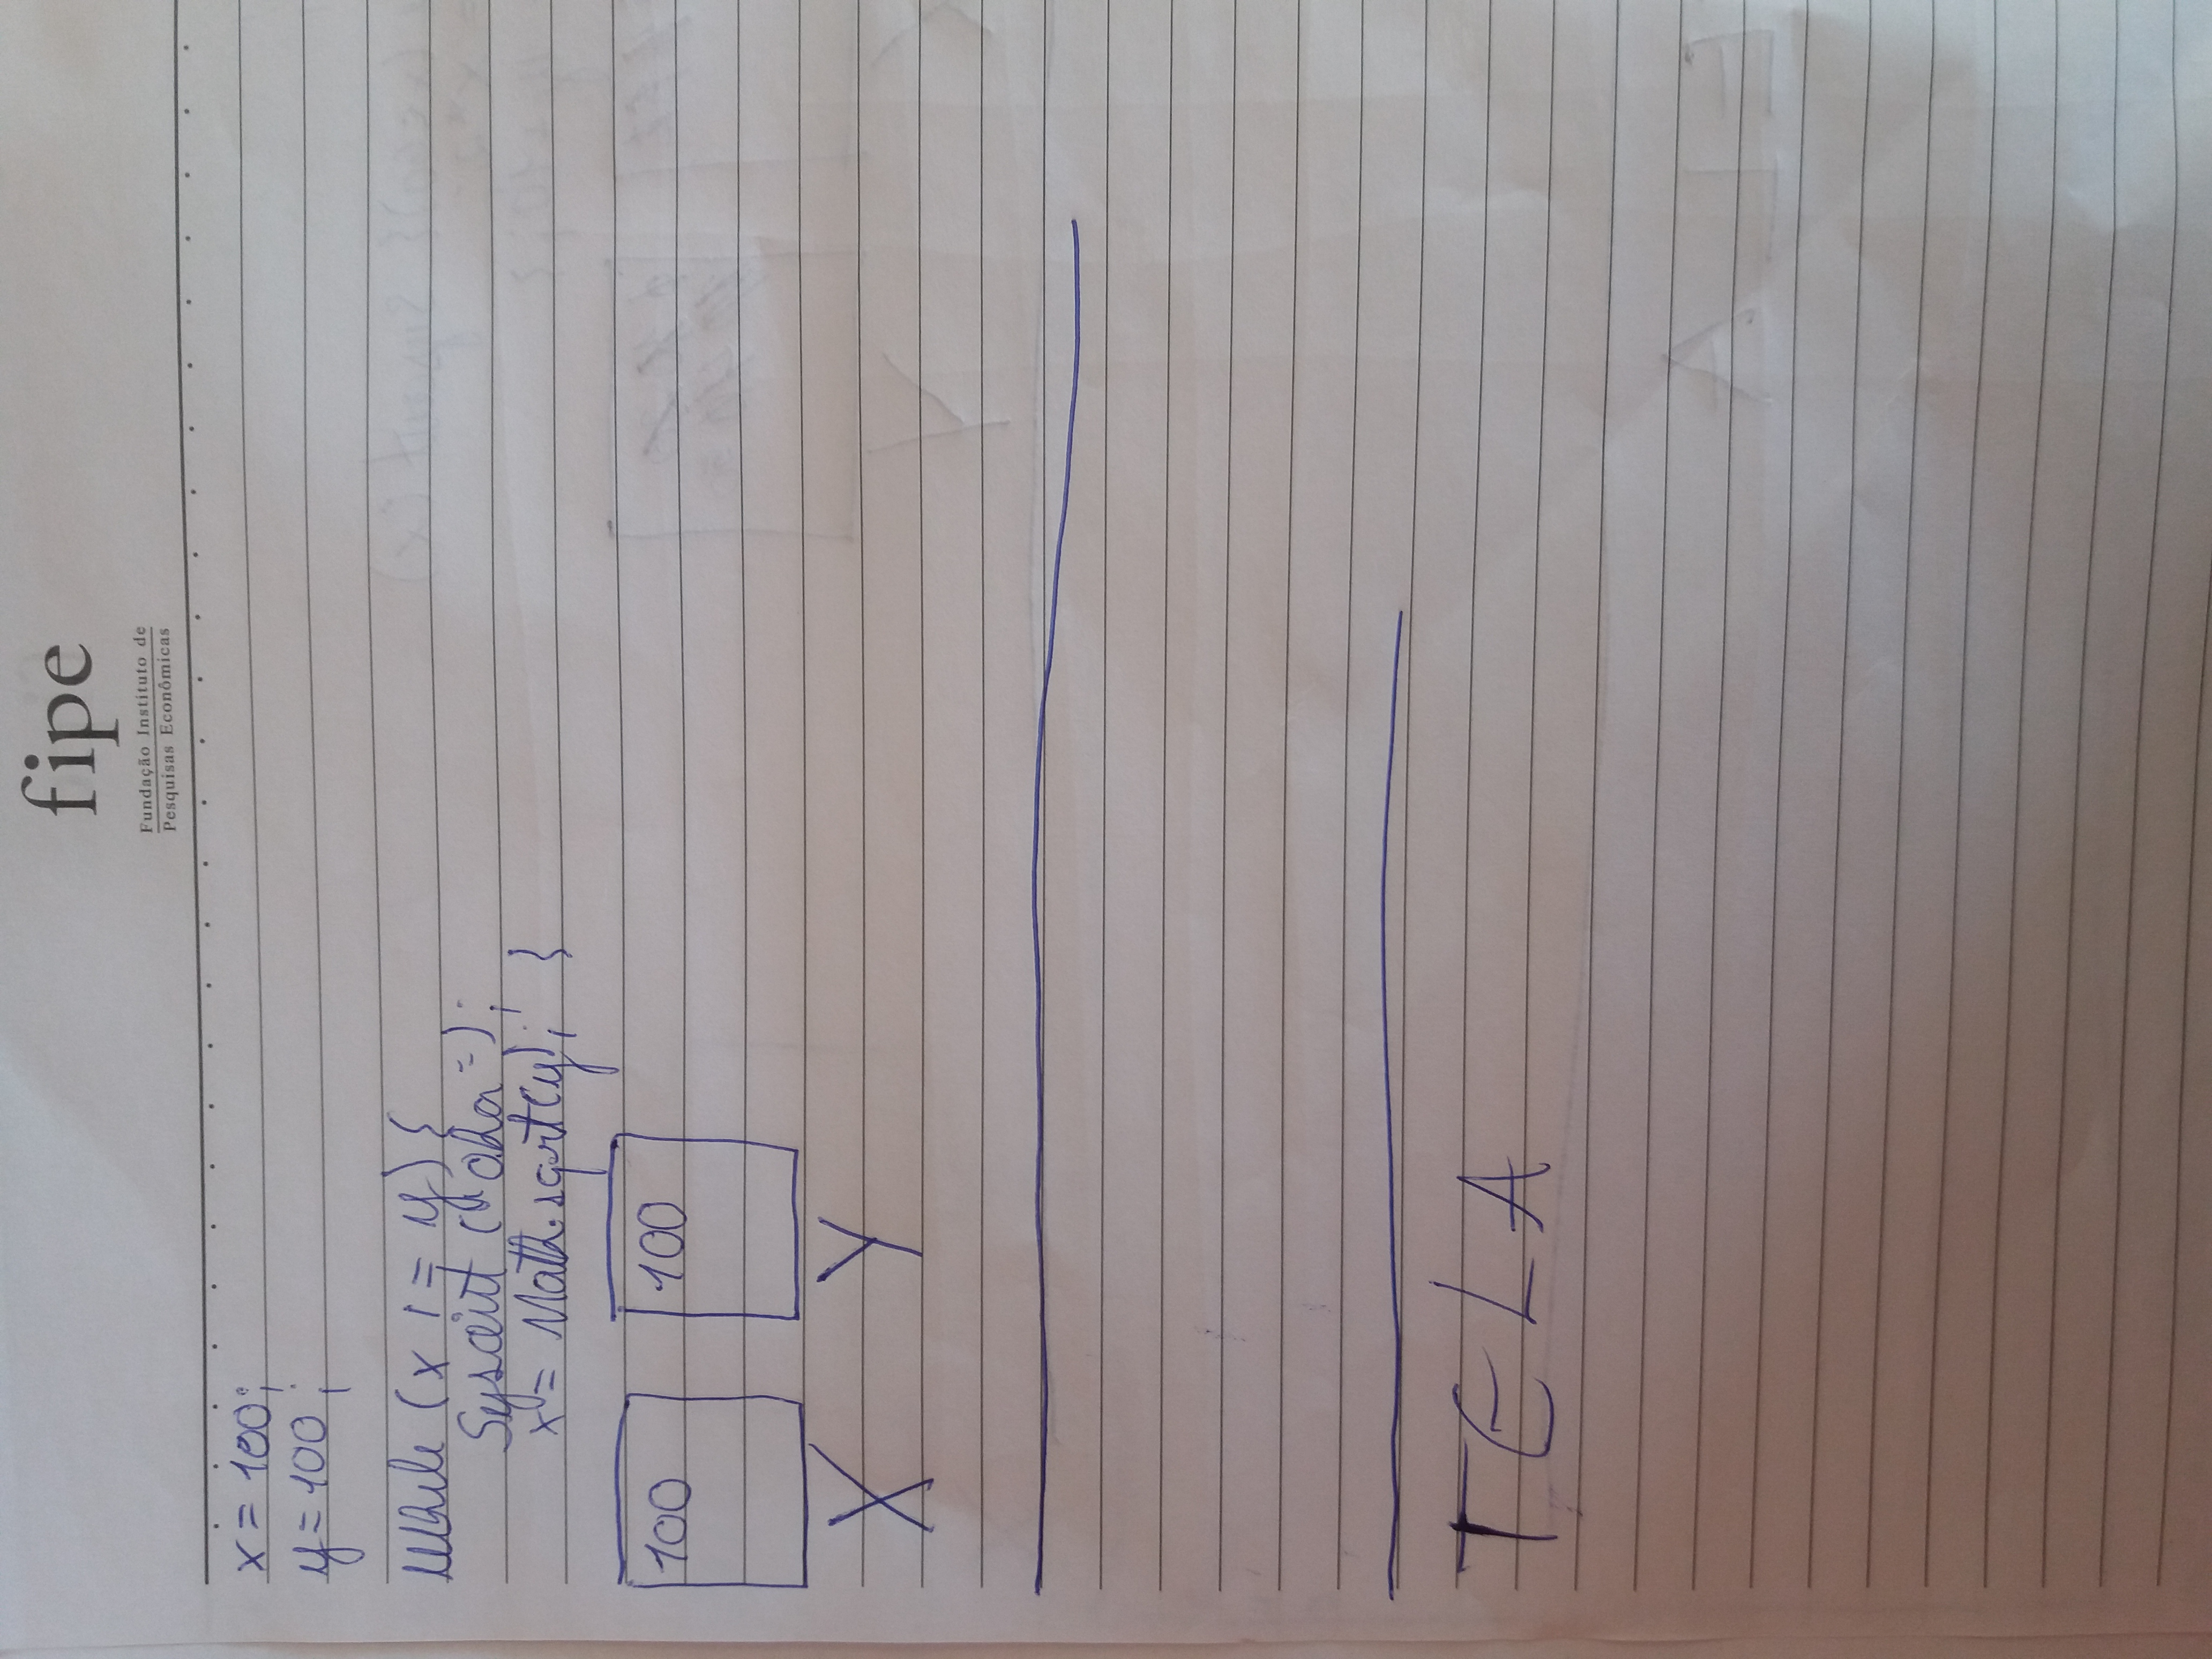 fipe
Fundação Instituto de
Pesquisas Econômicas
x = 100;
y = 100;
While (x != y) {
Sysout ("oha");
x = Math.sqrt(y); }
100 100
X Y
TELA